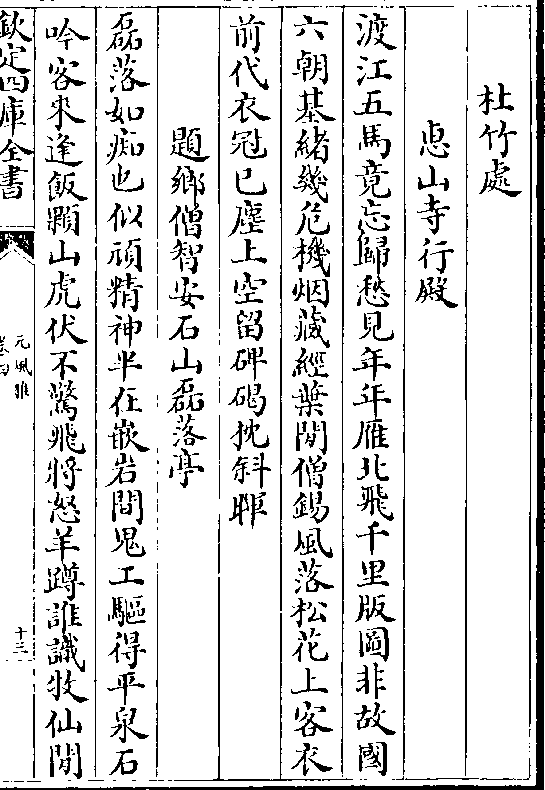 杜竹處
恵山寺行殿
渡江五馬竟忘歸愁見年年雁北飛千里版圖非故國
六朝基緒幾危機烟藏經葉閒僧錫風落松花上客衣
前代衣冠已塵土空留碑碣枕斜暉
題鄉僧智安石山磊落亭
磊落如痴也似頑精神半在嵌岩間鬼工驅得平泉石
吟客來逢飯顆山虎伏不驚飛將怒羊蹲誰識牧仙閒
欽定四庫全書
元風雅
卷四
十三